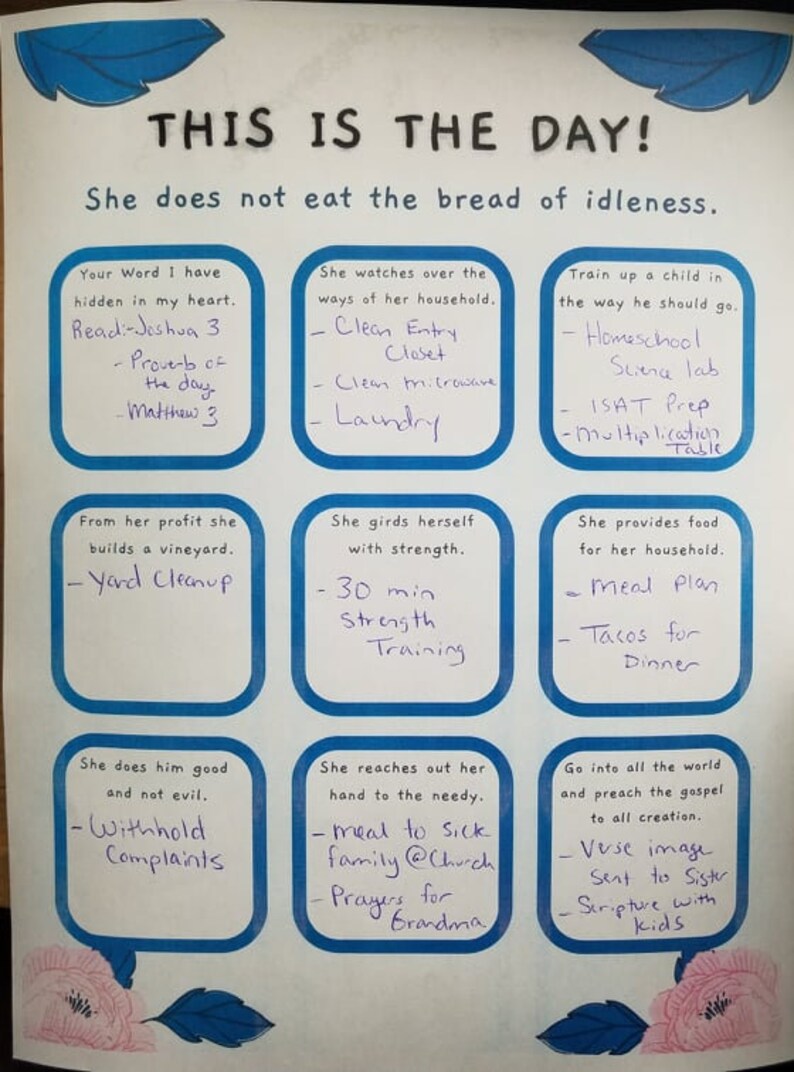 THIS IS THE DAY!
She does not eat the bread of idleness.
Your Word I have
hidden in my heart.
Read:-Joshua 3
- Proverb of
the day
- Matthew 3
She watches over the
ways of her household.
- Clean Entry
Closet
- Clean microwave
- Laundry
Train up a child in
the way he should go.
- Homeschool
Science lab
- ISAT Prep
- Multiplication
Table
From her profit she
builds a vineyard.
- Yard Cleanup
She girds herself
with strength.
- 30 min
Strength
Training
She provides food
for her household.
- Meal Plan
- Tacos for
Dinner
She does him good
and not evil.
- Withhold
Complaints
She reaches out her
hand to the needy.
- meal to Sick
family @Church
- Prayers for
Grandma
Go into all the world
and preach the gospel
to all creation.
- Verse image
Sent to Sister
- Scripture with
kids